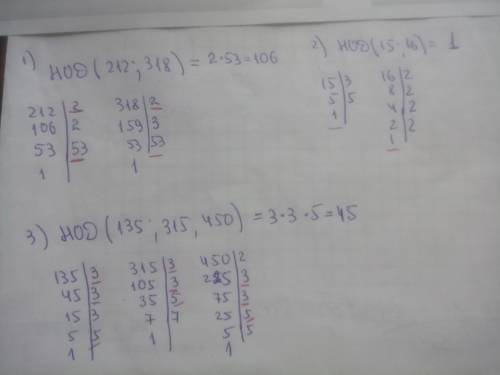 1) НОД (212; 318) = 2·53=106
212 | 2 318 | 2
106 | 2 159 | 3
53 | 53 53 | 53
1 1
2) НОД (15; 16) = 1
15 | 3 16 | 2
5 | 5 8 | 2
1 4 | 2
2 | 2
1
3) НОД (135; 315, 450) = 3·3·5=45
135 | 3 315 | 3 450 | 2
45 | 3 105 | 3 225 | 3
15 | 3 35 | 5 75 | 3
5 | 5 7 | 7 25 | 5
1 1 5 | 5
1